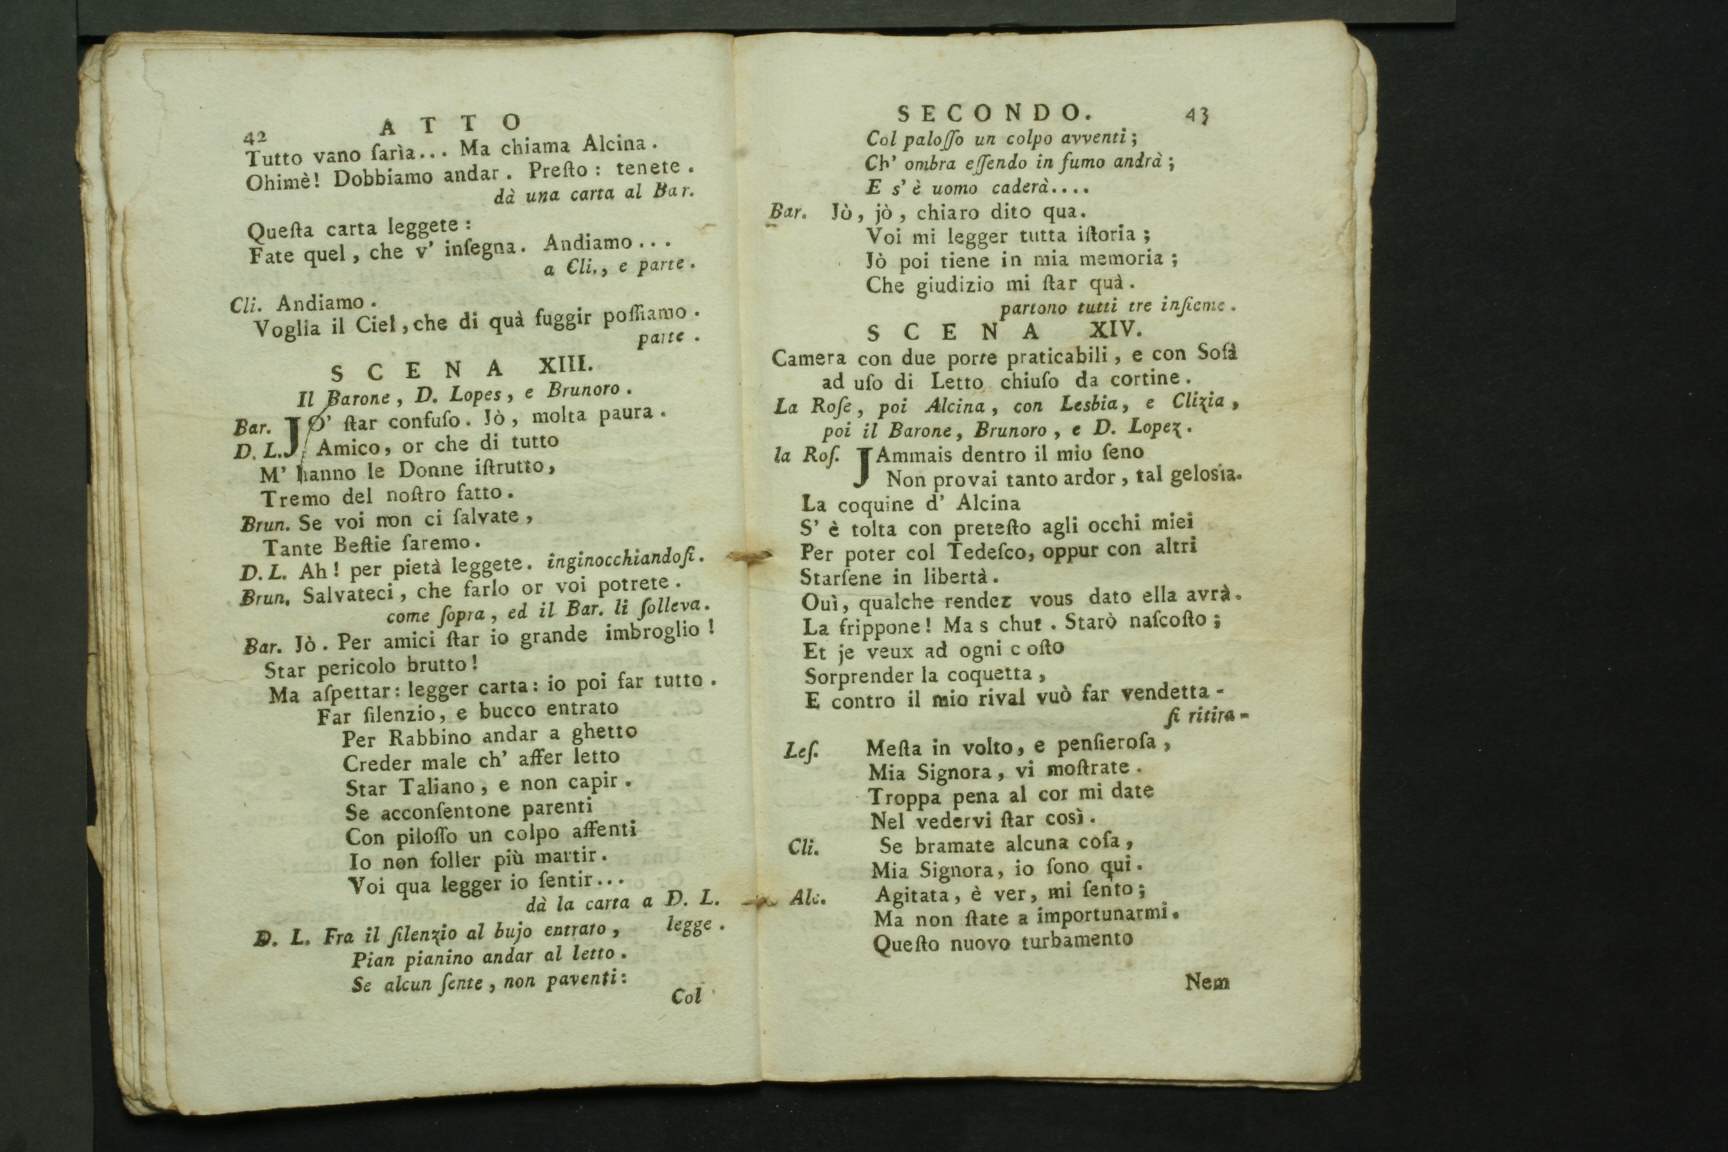 42 ATTO
Tutto vano ſarìa... Ma chiama Alcina.
Ohimè! Dobbiamo andar. Preſto: tenete.
dà una carta al Bar.
Queſta carta leggete:
Fate quel, che v' inſegna. Andiamo...
a Cli., e parte.
Cli. Andiamo.
Voglia il Ciel, che di quà fuggir poſſiamo.
parte.
SCENA XIII.
Il Barone, D. Lopes, e Brunoro.
Bar. JO' ſtar confuſo. Jò, molta paura.
D. L. Amico, or che di tutto
M' hanno le Donne iſtrutto,
Tremo del noſtro fatto.
Brun. Se voi non ci ſalvate,
Tante Beſtie ſaremo.
D. L. Ah! per pietà leggete. inginocchiandoſi.
Brun. Salvateci, che farlo or voi potrete.
come ſopra, ed il Bar. li ſolleva.
Bar. Jò. Per amici ſtar io grande imbroglio!
Star pericolo brutto!
Ma aſpettar: legger carta: io poi far tutto.
Far ſilenzio, e bucco entrato
Per Rabbino andar a ghetto
Creder male ch' affer letto
Star Taliano, e non capir.
Se acconſentone parenti
Con piloſſo un colpo affenti
Io non foller più martir.
Voi qua legger io ſentir...
dà la carta a D. L.
legge.
D. L. Fra il ſilenzio al bujo entrato,
Pian pianino andar al letto.
Se alcun ſente, non paventi:
Col
SECONDO. 43
Col paloſſo un colpo avventi;
Ch' ombra eſſendo in fumo andrà;
E s' è uomo caderà....
Bar. Jò, jò, chiaro dito qua.
Voi mi legger tutta iſtoria;
Jò poi tiene in mia memoria;
Che giudizio mi ſtar quà.
partono tutti tre inſieme.
SCENA XIV.
Camera con due porte praticabili, e con Sofà
ad uſo di Letto chiuſo da cortine.
La Roſe, poi Alcina, con Lesbia, e Clizia,
poi il Barone, Brunoro, e D. Lopez.
la Roſ. JAmmais dentro il mio ſeno
Non provai tanto ardor, tal gelosìa.
La coquine d' Alcina
S' è tolta con preteſto agli occhi miei
Per poter col Tedeſco, oppur con altri
Starſene in libertà.
Ouì, qualche rendez vous dato ella avrà.
La frippone! Ma s chut. Starò naſcoſto;
Et je veux ad ogni c oſto
Sorprender la coquetta,
E contro il mio rival vuò far vendetta.
ſi ritira.
Leſ. Meſta in volto, e penſieroſa,
Mia Signora, vi moſtrate.
Troppa pena al cor mi date
Nel vedervi ſtar così.
Cli. Se bramate alcuna coſa,
Mia Signora, io ſono qui.
Alc. Agitata, è ver, mi ſento;
Ma non ſtate a importunarmi.
Queſto nuovo turbamento
Nem